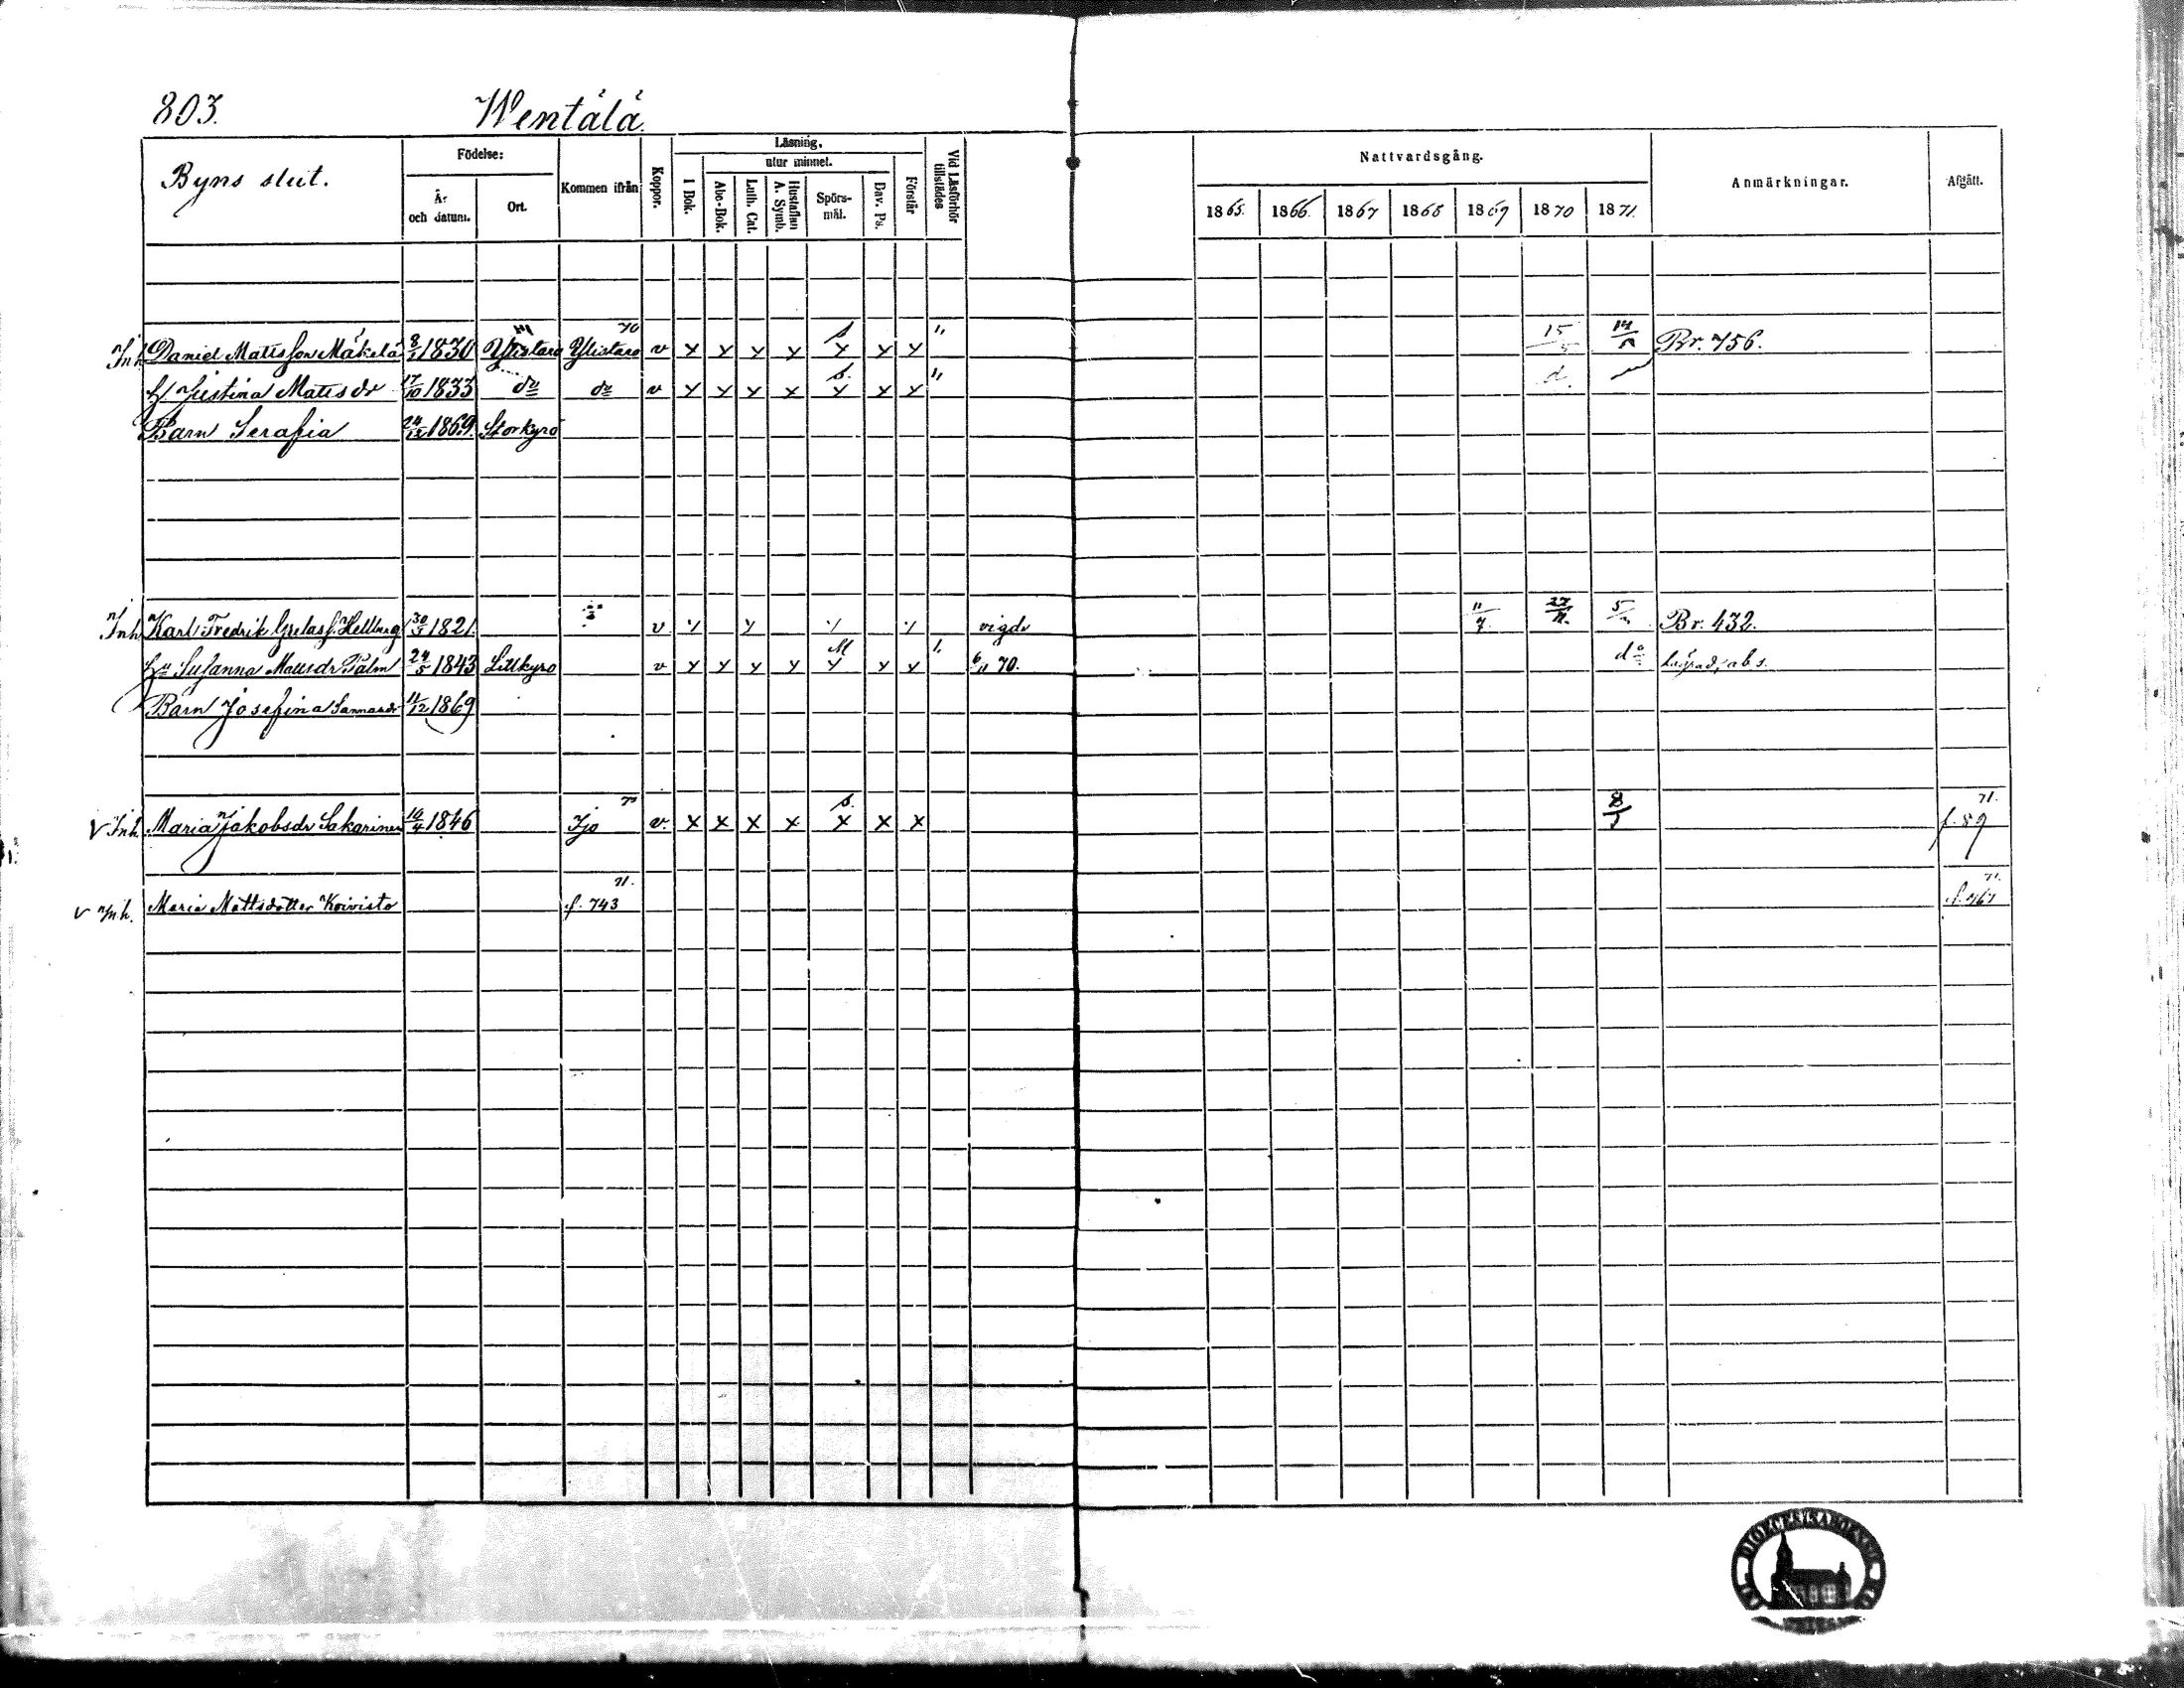 803. Wentälä.
Byns slut.
Födelse: År och datum. Ort. Kommen ifrån Koppor. Läsning, utur minnet. I Bok. Abc-Bok. Luth. Cat. Hustaflan A. Symb. Spörs-mål. Dav. Ps. Förstår Vid Läsförhör tillstädes Nattvardsgång. 1865. 1866. 1867 1868 1869 1870 1871. Anmärkningar. Afgått.
70
Inh Daniel Mattsson Mäkelä 8/1 1830 Ylistaro Ylistaro v x x x x x x x " 15/5 14/5 Br. 756.
H Justina Matts dr 17/10 1833 do do v x x x x x x x " d
Barn Serafia 24/12 1869. Storkyro
Inh Karl Fredrik Gretas s. Hellberg 30/5 1821. v y y y y vigde 11/7 27/11 5/11 Br. 432.
Hu Susanna Mattsdr Palm 24/5 1843 Lillkyro v x x x x x x x 6/11 70. do abs.
Barn Josefina Sannasdr 11/12 1869
70 s. 71.
v Inh. Maria Jakobsdr Sakarinen 10/4 1846 Ijo v. x x x x x x x 8/1 f. 59
71. 71.
v Inh. Maria Mattsdotter Koivisto f. 743 f. 767